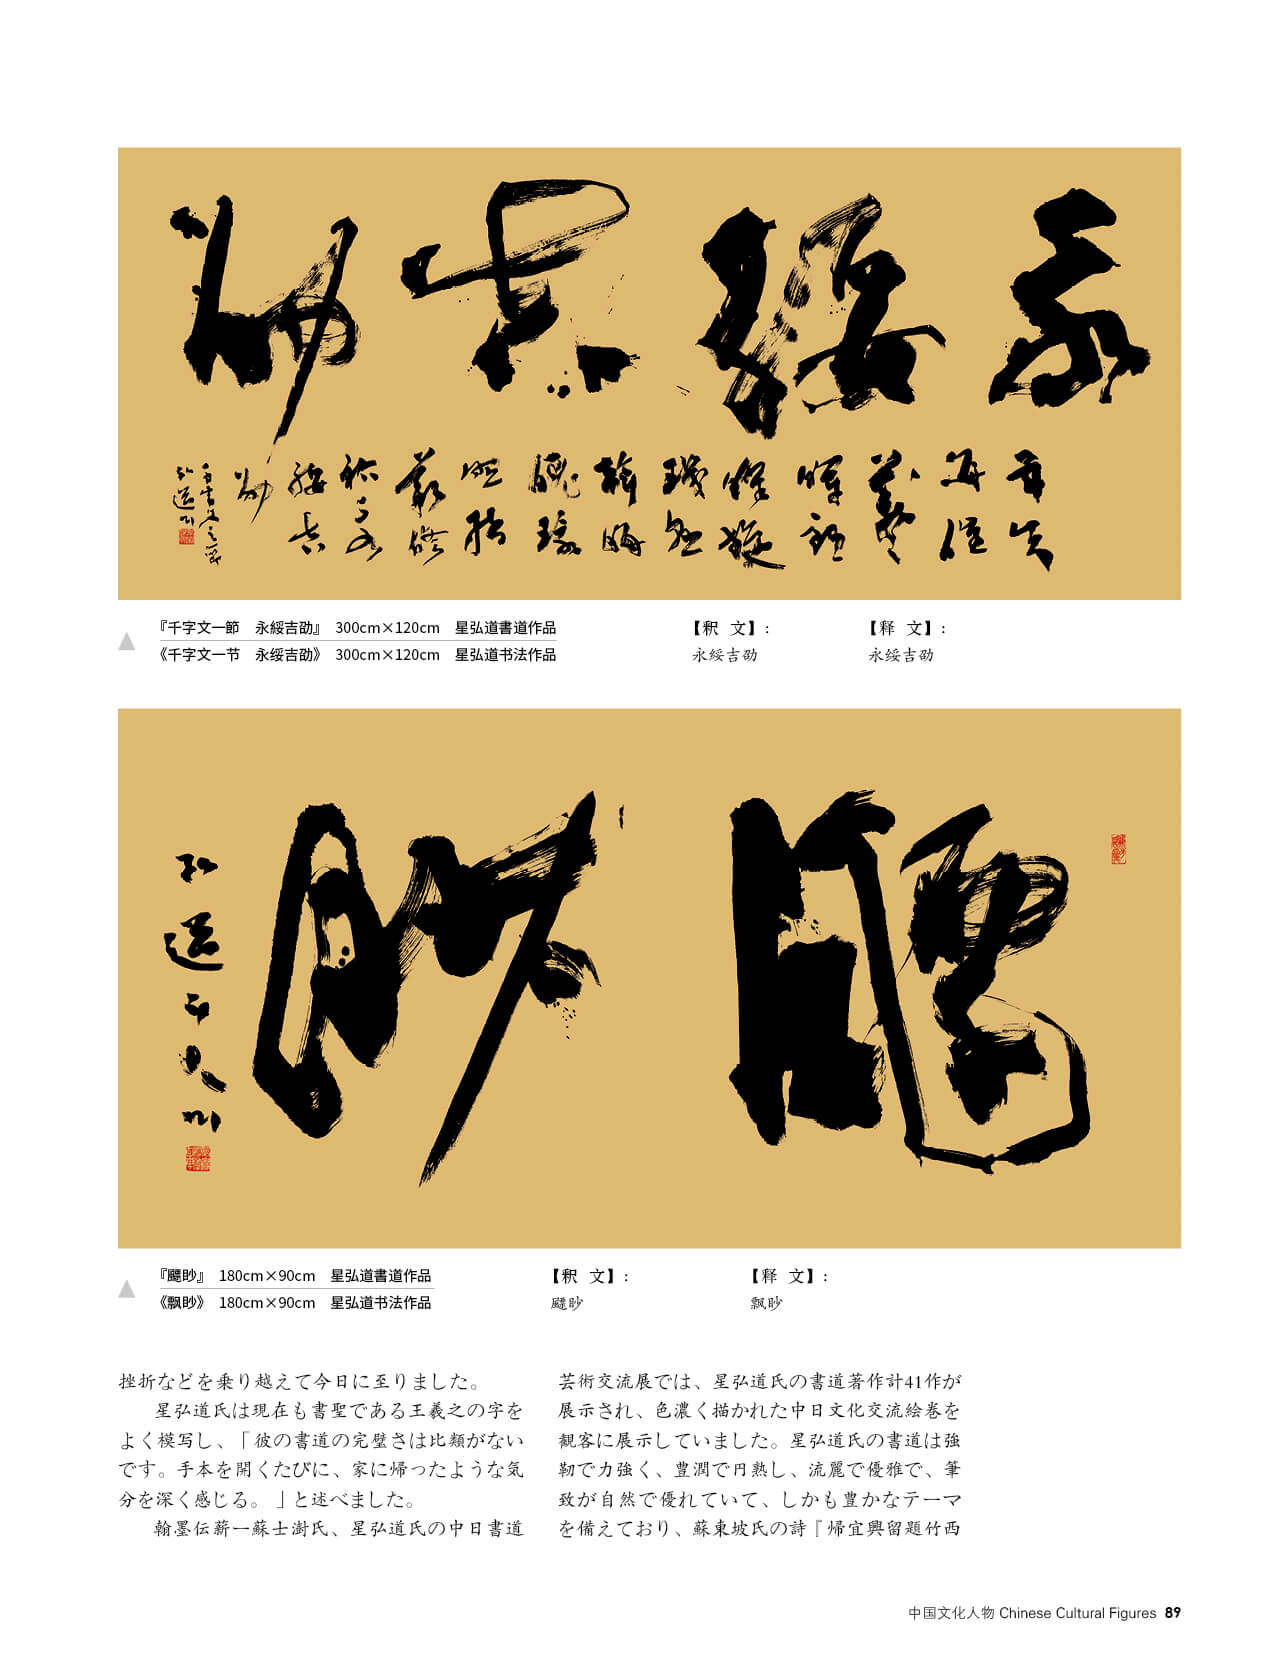 永綏吉劭
『千字文一節　永綏吉劭』　300cm×120cm　星弘道書道作品
《千字文一节　永绥吉劭》　300cm×120cm　星弘道书法作品
【釈　文】:
永綏吉劭
【释　文】:
永绥吉劭
飃眇
『飃眇』　180cm×90cm　星弘道書道作品
《飘眇》　180cm×90cm　星弘道书法作品
【釈　文】:
飃眇
【释　文】:
飘眇
挫折などを乗り越えて今日に至りました。
星弘道氏は現在も書聖である王羲之の字を
よく模写し、「彼の書道の完璧さは比類がない
です。手本を開くたびに、家に帰ったような気
分を深く感じる。」と述べました。
翰墨伝薪一蘇士澍氏、星弘道氏の中日書道
芸術交流展では、星弘道氏の書道著作計41作が
展示され、色濃く描かれた中日文化交流絵巻を
観客に展示していました。星弘道氏の書道は強
靭で力強く、豊潤で円熟し、流麗で優雅で、筆
致が自然で優れていて、しかも豊かなテーマ
を備えており、蘇東坡氏の詩『帰宜興留題竹西
中国文化人物 Chinese Cultural Figures 89